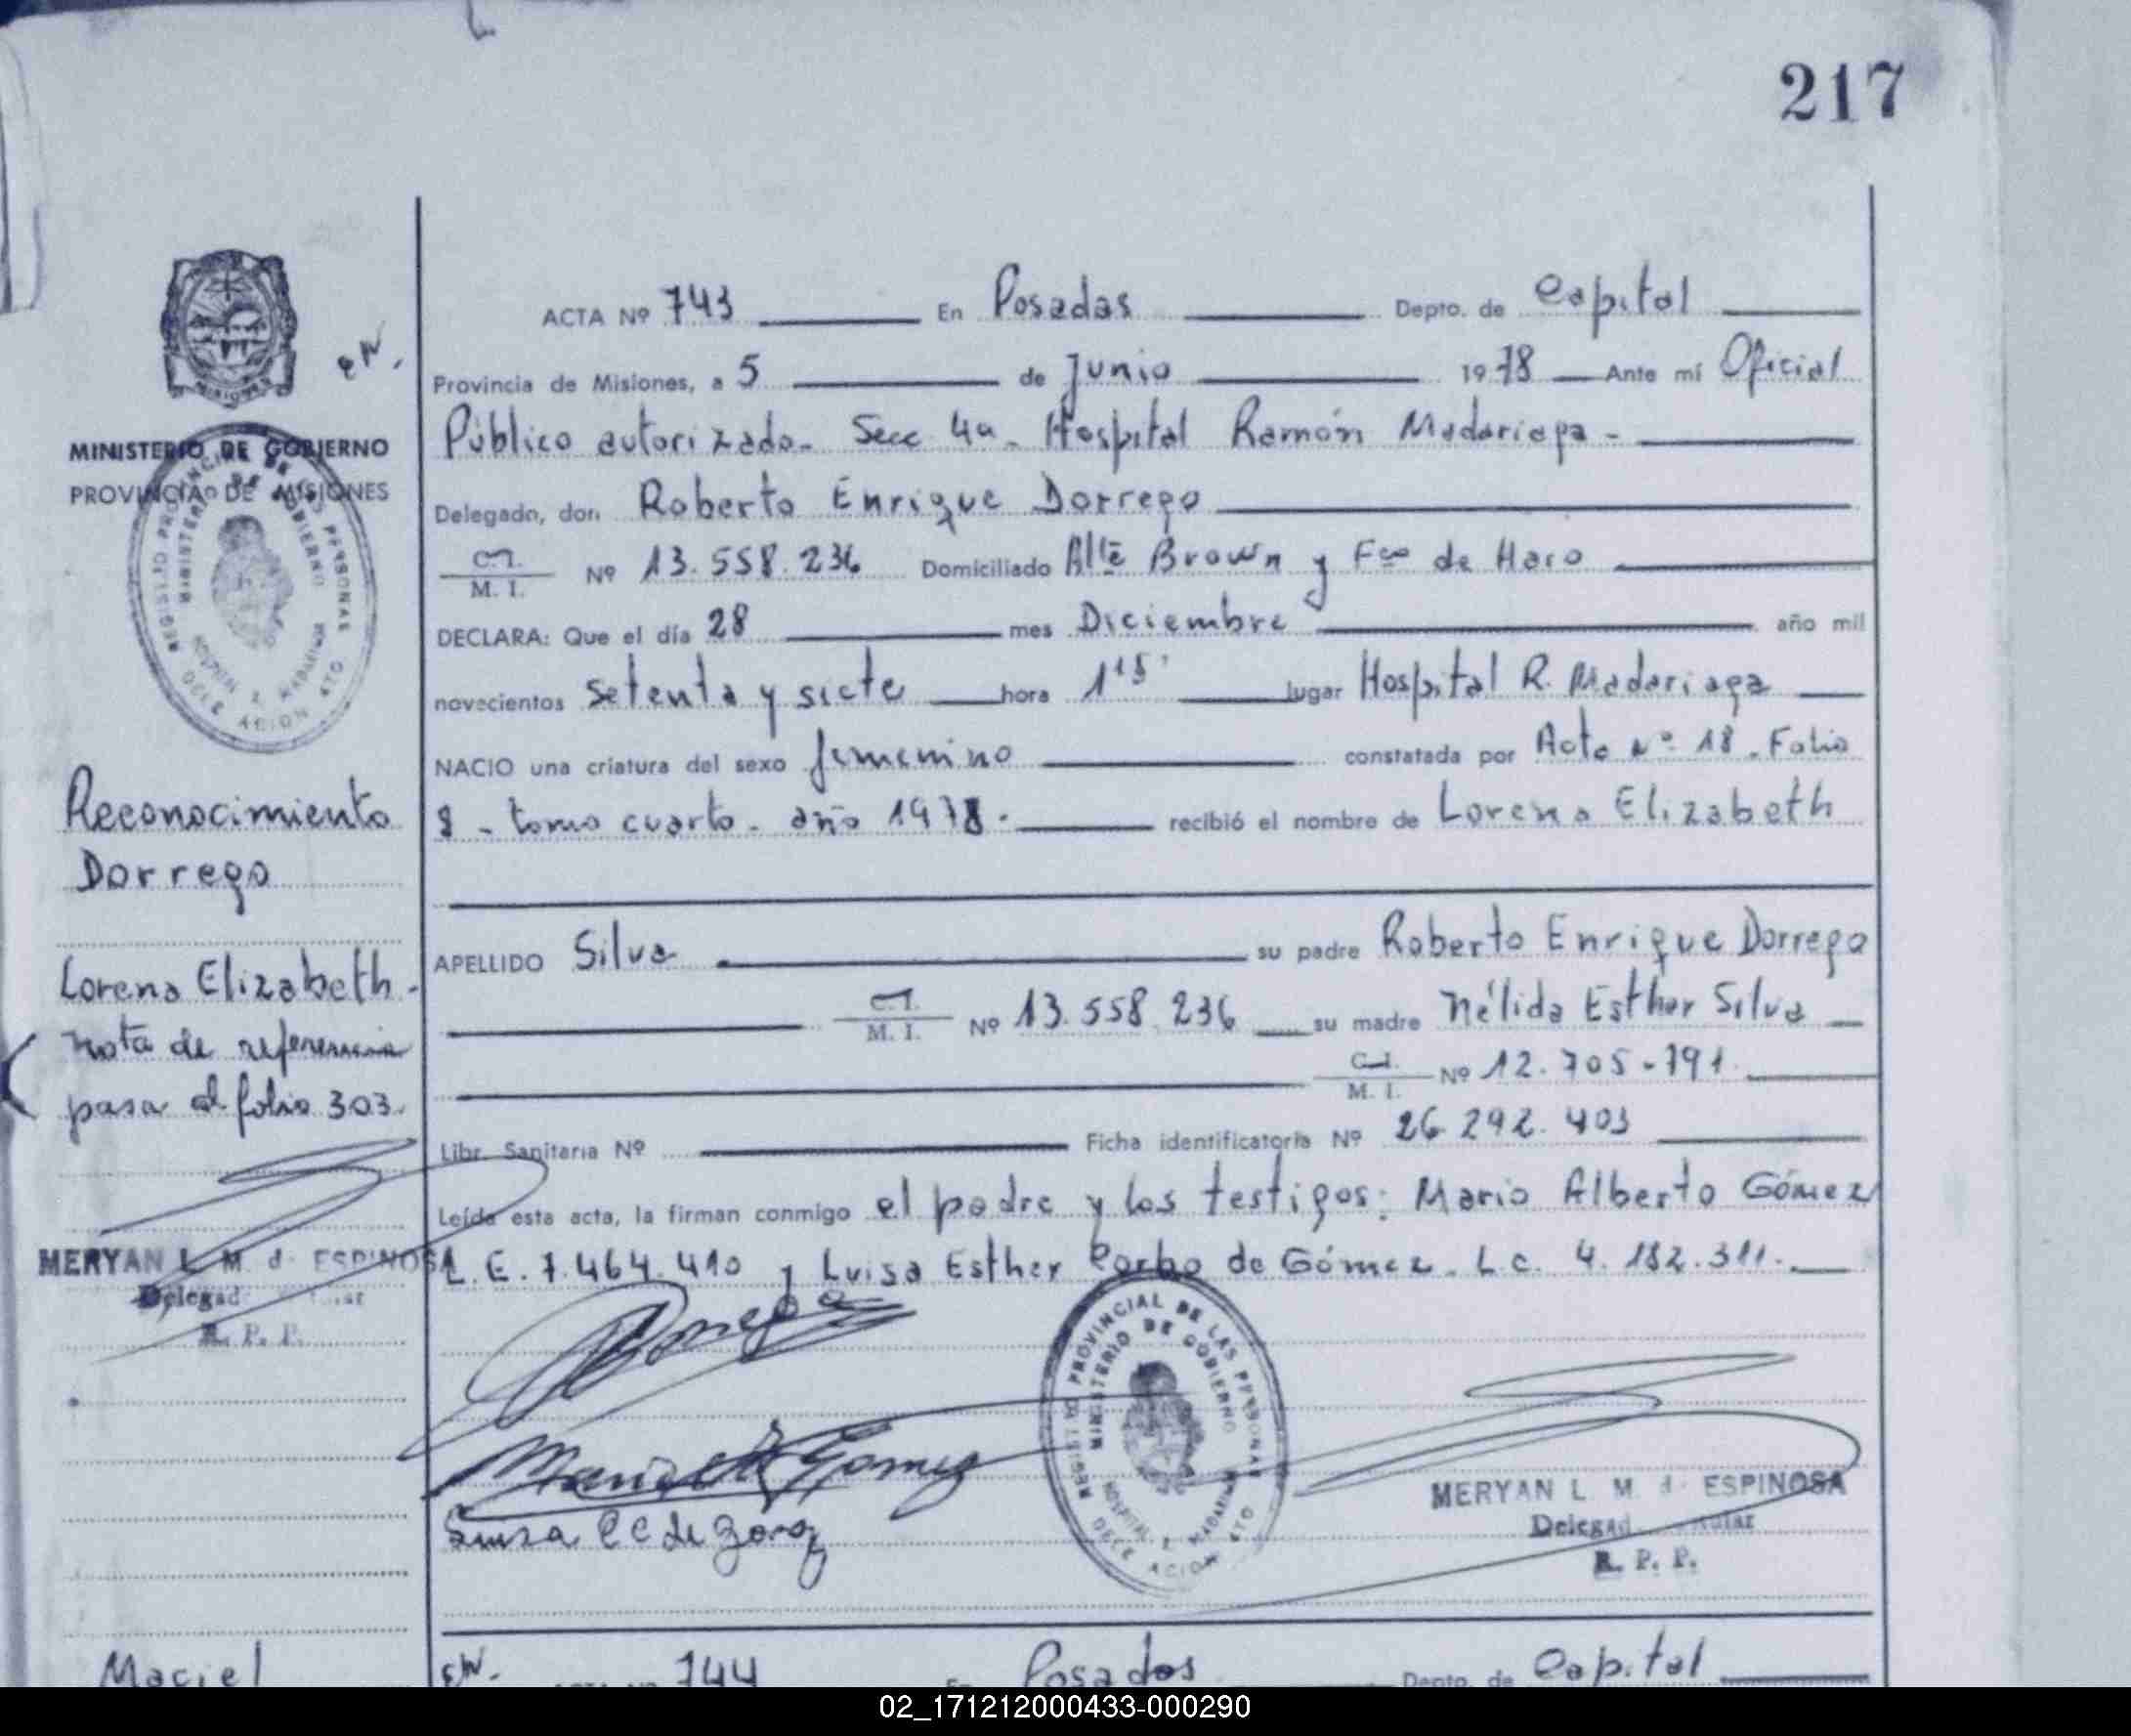 217
ACTA Nº 743 En Posadas Depto. de Capital
Provincia de Misiones, a 5 de Junio 1978 Ante mí Oficial
Público autorizado - Secc 4a - Hospital Ramón Madariaga -
Delegado, don Roberto Enrique Dorrego
C.I.
M. I. Nº 13.558.236 Domiciliado Alte Brown y Fco de Haro
DECLARA: Que el día 28 mes Diciembre año mil
novecientos setenta y siete hora 1 15' lugar Hospital R. Madariaga
NACIO una criatura del sexo femenino constatada por Acta Nº 18 - Folio
8 - tomo cuarto - año 1978 - recibió el nombre de Lorena Elizabeth
APELLIDO Silva su padre Roberto Enrique Dorrego
C.I.
M. I. Nº 13.558.236 su madre Nélida Esther Silva
C.I.
M. I. Nº 12.705-791
Libr. Sanitaria Nº Ficha identificatoria Nº 26.292.403
Leída esta acta, la firman conmigo el padre y los testigos: Mario Alberto Gómez
L.E. 7.464.410 y Luisa Esther de Gómez - L.C. 4.182.311.
MINISTERIO DE GOBIERNO
PROVINCIA DE MISIONES
REGISTRO PROVINCIAL DE LAS PERSONAS
MINISTERIO DE GOBIERNO
HOSPITAL R. MADARIAGA
DELEGACION 4TO
Reconocimiento
Dorrego
Lorena Elizabeth -
Nota de referencia
pasa al folio 303.
MERYAN L. M. d. ESPINOSA
Delegad
R. P. P.
Dorrego
Gomez
Luisa
REGISTRO PROVINCIAL DE LAS PERSONAS
MINISTERIO DE GOBIERNO
HOSPITAL R. MADARIAGA
DELEGACION 4TO
MERYAN L. M. d. ESPINOSA
Delegad
R. P. P.
Maciel
ACTA Nº 744 En Posadas Depto. de Capital
02_171212000433-000290